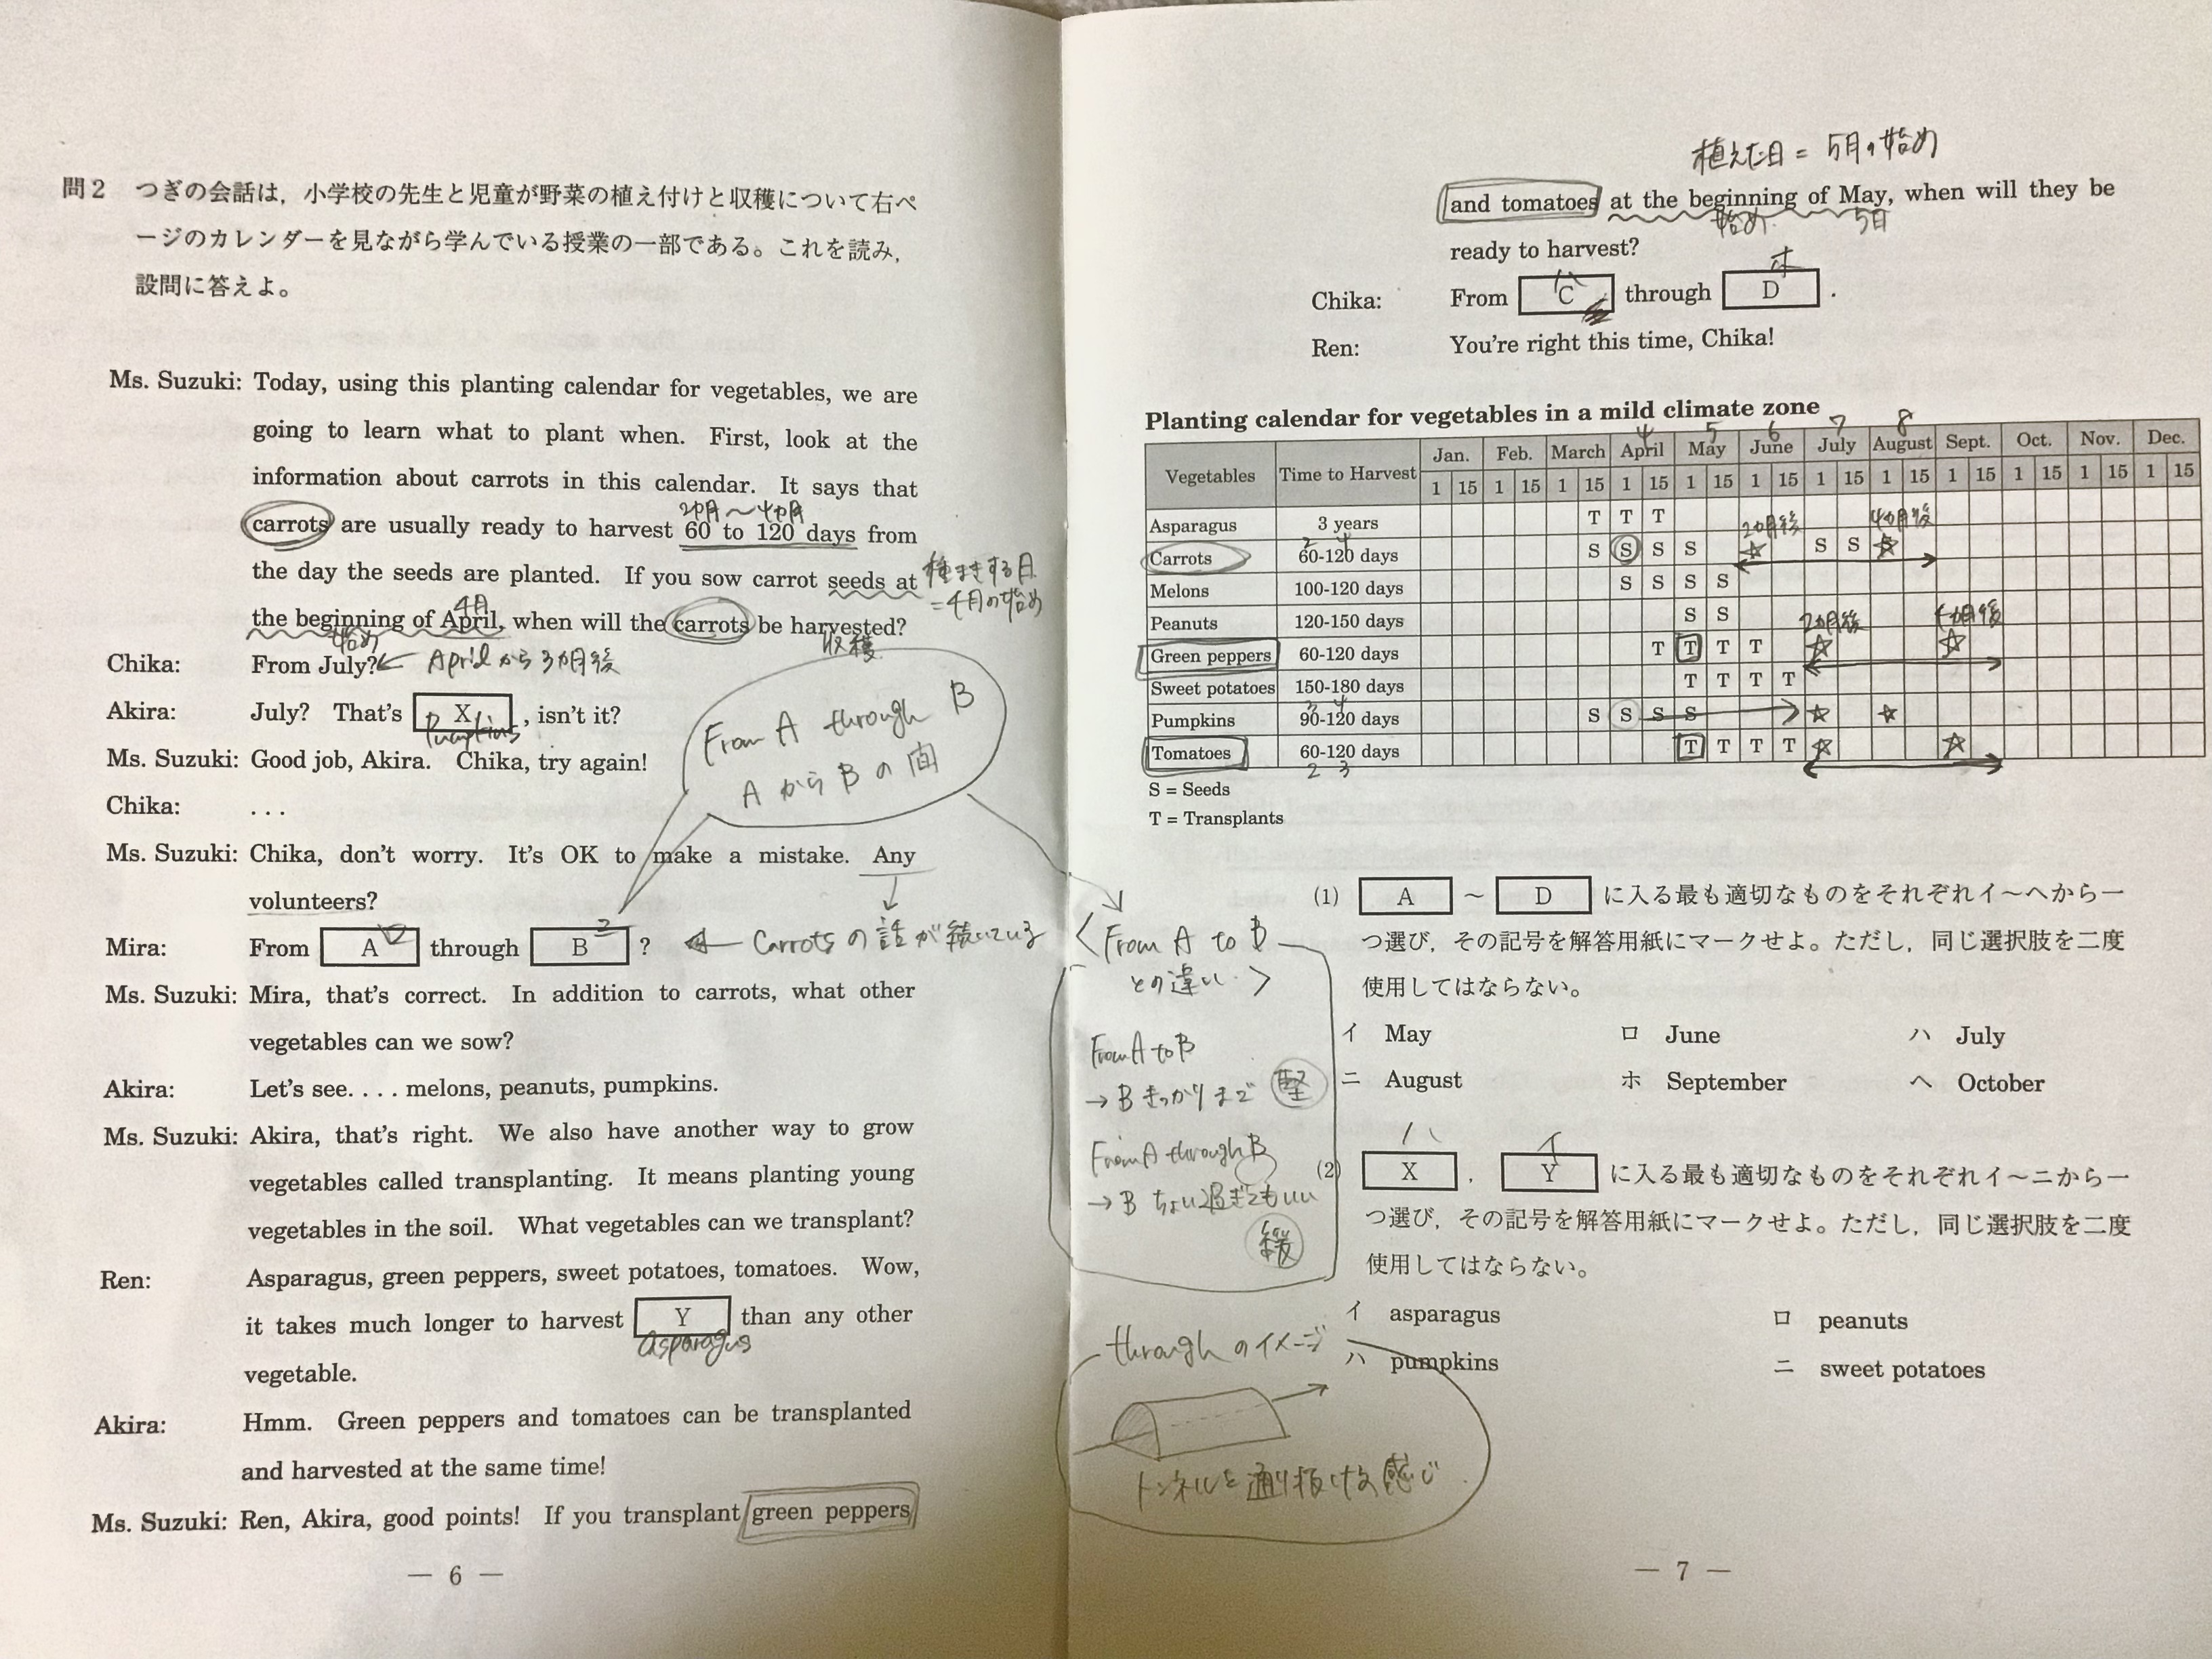 問2 つぎの会話は，小学校の先生と児童が野菜の植え付けと収穫について右ペ
ージのカレンダーを見ながら学んでいる授業の一部である。これを読み，
設問に答えよ。
Ms. Suzuki: Today, using this planting calendar for vegetables, we are
going to learn what to plant when. First, look at the
information about carrots in this calendar. It says that
2カ月〜4カ月
carrots are usually ready to harvest 60 to 120 days from
the day the seeds are planted. If you sow carrot seeds at
種まきする日
=4月の始め
4月
the beginning of April, when will the carrots be harvested?
始め
収穫
Chika: From July? ← April から3カ月後
Akira: July? That's X, isn't it?
Pumpkins
Ms. Suzuki: Good job, Akira. Chika, try again!
Chika: . . .
Ms. Suzuki: Chika, don't worry. It's OK to make a mistake. Any
volunteers?
From A through B
AからBの間
Mira: From A through B ?
ロ
ニ
← Carrots の話が続いている
Ms. Suzuki: Mira, that's correct. In addition to carrots, what other
vegetables can we sow?
Akira: Let's see. . . . melons, peanuts, pumpkins.
Ms. Suzuki: Akira, that's right. We also have another way to grow
vegetables called transplanting. It means planting young
vegetables in the soil. What vegetables can we transplant?
Ren: Asparagus, green peppers, sweet potatoes, tomatoes. Wow,
it takes much longer to harvest Y than any other
asparagus
vegetable.
Akira: Hmm. Green peppers and tomatoes can be transplanted
and harvested at the same time!
Ms. Suzuki: Ren, Akira, good points! If you transplant green peppers
— 6 —
植えた日 = 5月の始め
and tomatoes at the beginning of May, when will they be
始め
5月
ready to harvest?
ハ
ホ
Chika: From C through D .
Ren: You're right this time, Chika!
Planting calendar for vegetables in a mild climate zone
4 5 6 7 8
Vegetables Time to Harvest Jan. Feb. March April May June July August Sept. Oct. Nov. Dec.
1 15 1 15 1 15 1 15 1 15 1 15 1 15 1 15 1 15 1 15 1 15 1 15
Asparagus 3 years T T T
2カ月後 4カ月後
2 4
Carrots 60-120 days S S S S ☆ S S ☆
Melons 100-120 days S S S S
Peanuts 120-150 days S S
2カ月後 4カ月後
Green peppers 60-120 days T T T T ☆ ☆
Sweet potatoes 150-180 days T T T T
3 4
Pumpkins 90-120 days S S S S ☆ ☆
Tomatoes 60-120 days T T T T ☆ ☆
2 3
S = Seeds
T = Transplants
(1) A 〜 D に入る最も適切なものをそれぞれイ〜ヘから一
つ選び，その記号を解答用紙にマークせよ。ただし，同じ選択肢を二度
使用してはならない。
イ May ロ June ハ July
ニ August ホ September ヘ October
ハ
イ
(2) X ， Y に入る最も適切なものをそれぞれイ〜ニから一
つ選び，その記号を解答用紙にマークせよ。ただし，同じ選択肢を二度
使用してはならない。
イ asparagus ロ peanuts
ハ pumpkins ニ sweet potatoes
〈From A to B
との違い〉
From A to B
→ B きっかりまで 堅
From A through B
→ B ちょい過ぎてもいい
緩
through のイメージ
トンネルを通り抜ける感じ
— 7 —